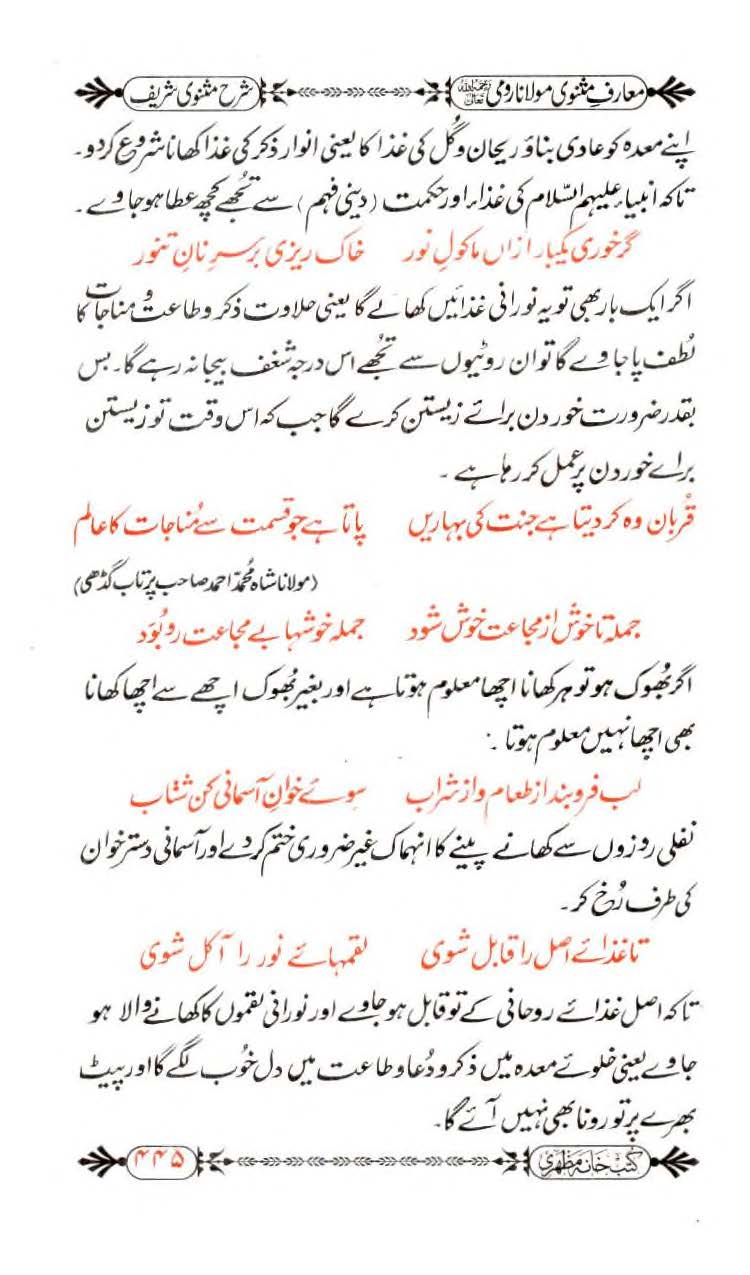 معارف مثنوی مولانا رومی رحمہ اللہ تعالیٰ شرح مثنوی شریف
اپنے معدہ کو عادی بناؤ ریحان و گُل کی غذا کا یعنی انوار ذکر کی غذا کھانا شروع کردو۔
تاکہ انبیاء علیہم السّلام کی غذاء اور حکمت (دینی فہم) سے تجھے کچھ عطا ہو جاوے۔
گر خوری یکبار ازاں ماکولِ نور خاک ریزی برسرِ نانِ تنور
اگر ایک بار بھی تو یہ نورانی غذائیں کھالے گا یعنی حلاوت ذکر و طاعت و مناجات کا
لُطف پا جاوے گا تو ان روٹیوں سے تجھے اس درجہ شغف بیجا نہ رہے گا۔ بس
بقدر ضرورت خوردن برائے زیستن کرے گا جب کہ اس وقت تو زیستن
برائے خوردن پر عمل کر رہا ہے ۔
قُربان وہ کردیتا ہے جنت کی بہاریں پاتا ہے جو قسمت سے مُناجات کا عالم
(مولانا شاہ مُحمّد احمد صاحب پرتاب گڈھی)
جملہ تاخوش از مجاعت خوش شود جملہ خوشہا بے مجاعت رد بُوَد
اگر بُھوک ہو تو ہر کھانا اچھا معلوم ہوتا ہے اور بغیر بُھوک اچھے سے اچھا کھانا
بھی اچھا نہیں معلوم ہوتا ۔
لب فروبند از طعام و از شراب سوئے خوانِ آسمانی کن شتاب
نفلی روزوں سے کھانے پینے کا انہماک غیر ضروری ختم کردے اور آسمانی دسترخوان
کی طرف رُخ کر ۔
تا غذائے اصل را قابل شوی لقمہائے نور را آکل شوی
تاکہ اصل غذائے روحانی کے تو قابل ہو جاوے اور نورانی لقموں کا کھانے والا ہو
جاوے یعنی خلوئے معدہ میں ذکر و دُعا و طاعت میں دل خُوب لگے گا اور پیٹ
بھرے پر تو رونا بھی نہیں آئے گا۔
کتب خانہ مظہری ۴۴۵